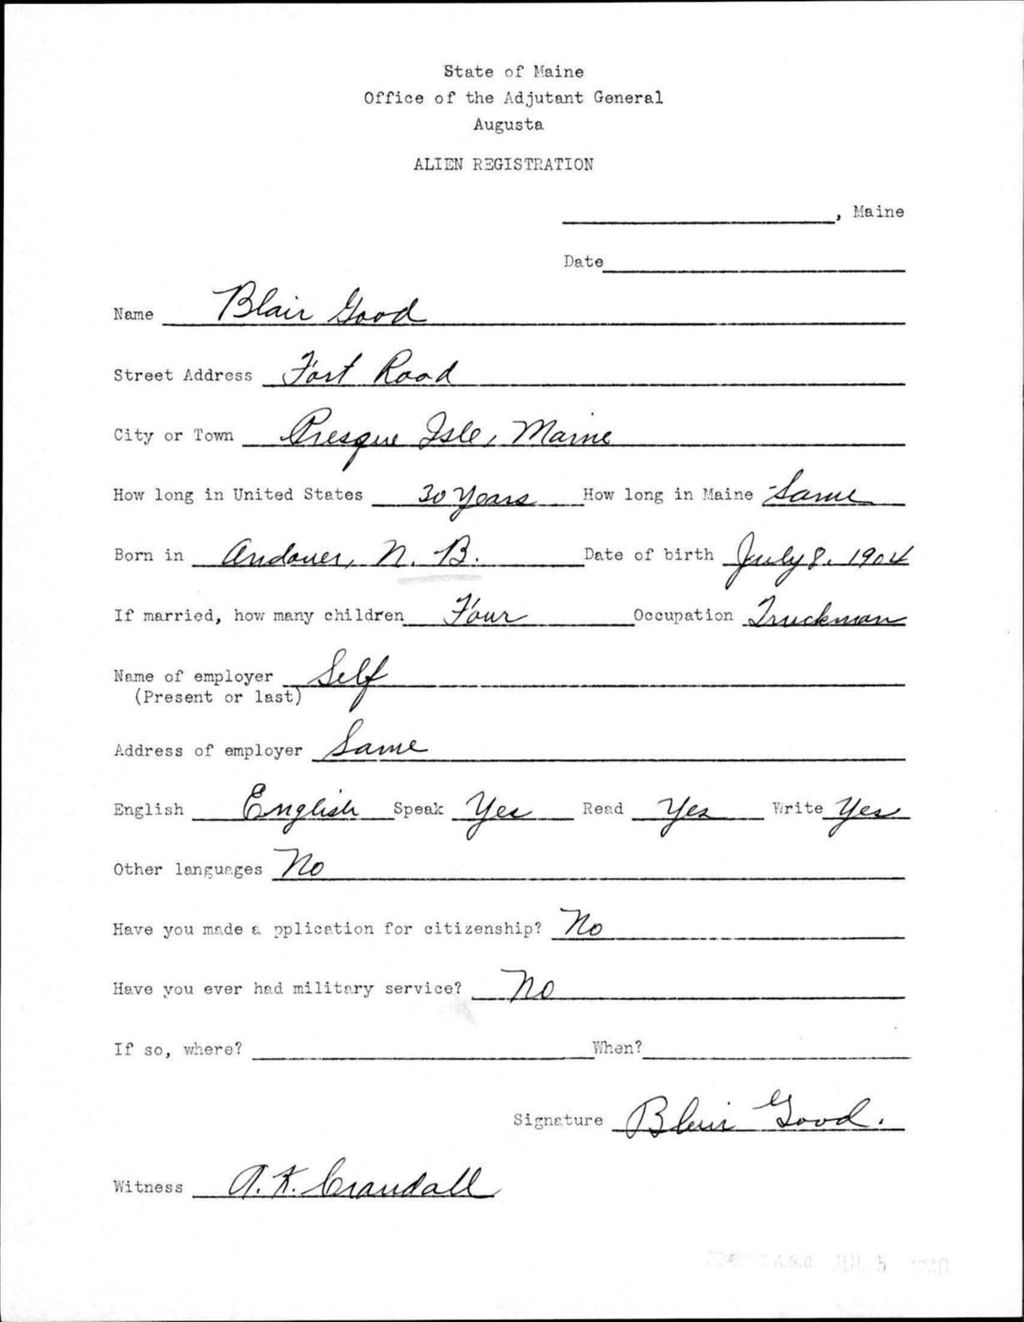 State of Maine
Office of the Adjutant General
Augusta
ALIEN REGISTRATION
, Maine
Date
Name Blair Good
Street Address Fort Road
City or Town Presque Isle, Maine
How long in United States 30 Years How long in Maine Same
Born in Andover, N. B. Date of birth July 8, 1904
If married, how many children Four Occupation Truckman
Name of employer Self
(Present or last)
Address of employer Same
English English Speak Yes Read Yes Write Yes
Other languages No
Have you made a pplication for citizenship? No
Have you ever had military service? No
If so, where? When?
Signature Blair Good.
Witness A. K. Crandall
JUL 5 1940